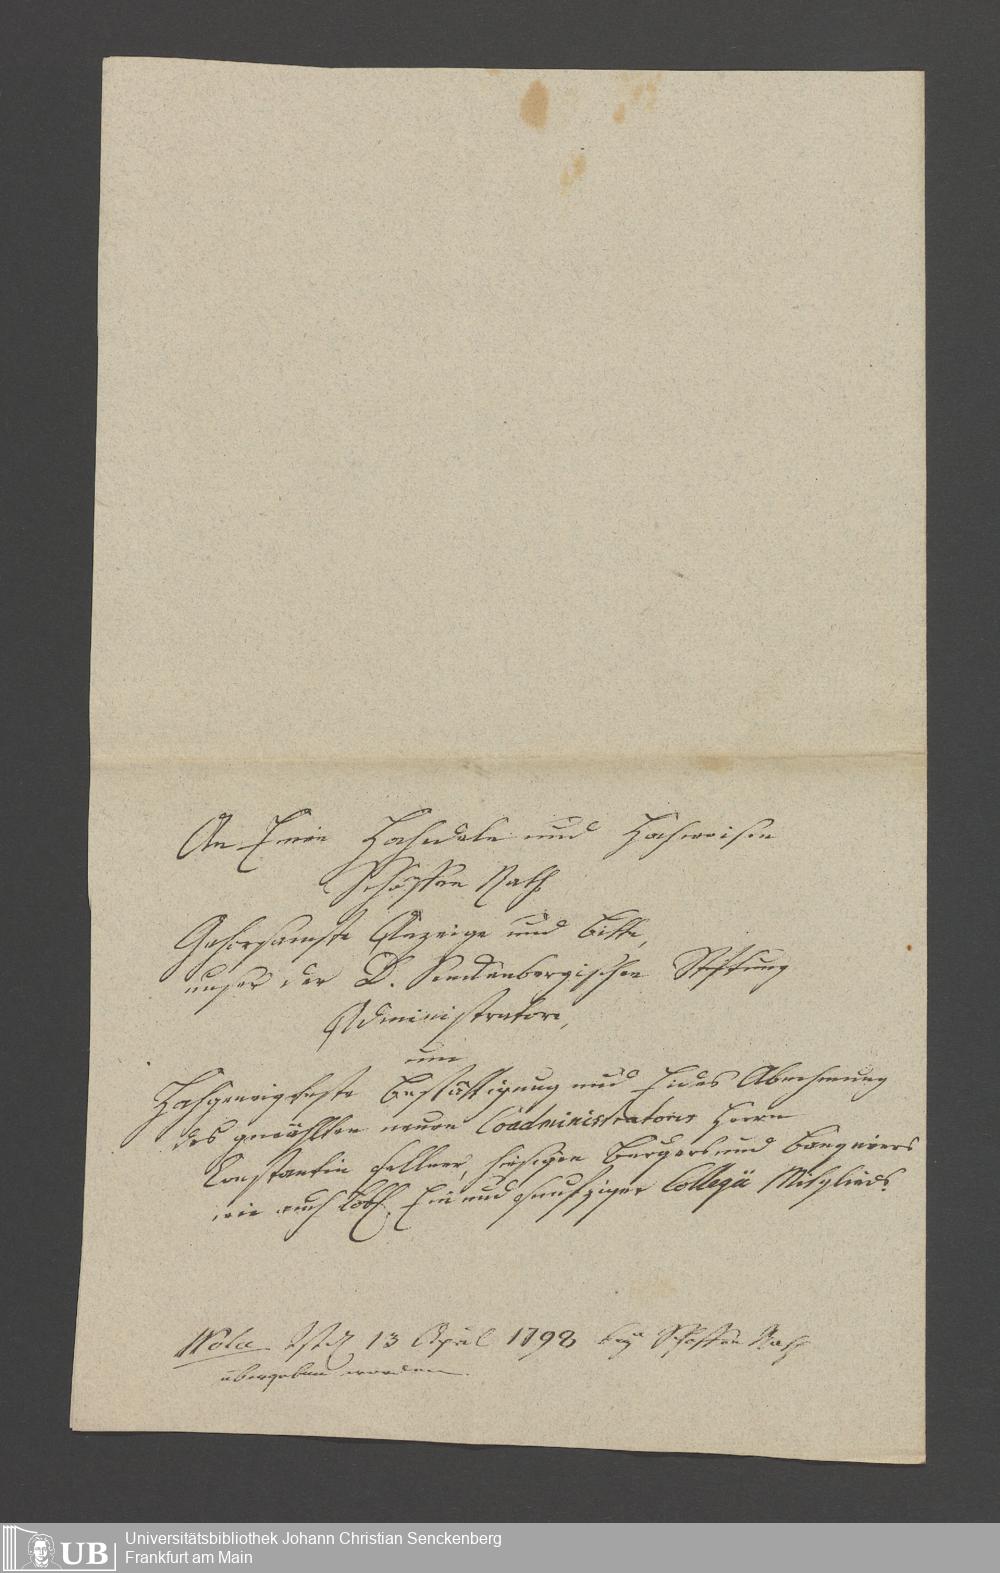 An Einen Hochedeln und Hochweisen
Schöffen Rath
Gehorsamste Anzeige und Bitte,
unser der D. Senckenbergischen Stiftung
Administratorn,
um
Hochgeneigteste Bestättigung und Eides Abnehmung
des gewählten neuen Coadministratoris Herrn
Constantin Fellner, hiesigen Burgers und Banquiers
wie auch Löbl. Ein und funfziger Collegii Mitglieds.
Nota. 13 April 1798 bey Schöffen Rath
übergeben worden.
UB
Universitätsbibliothek Johann Christian Senckenberg
Frankfurt am Main